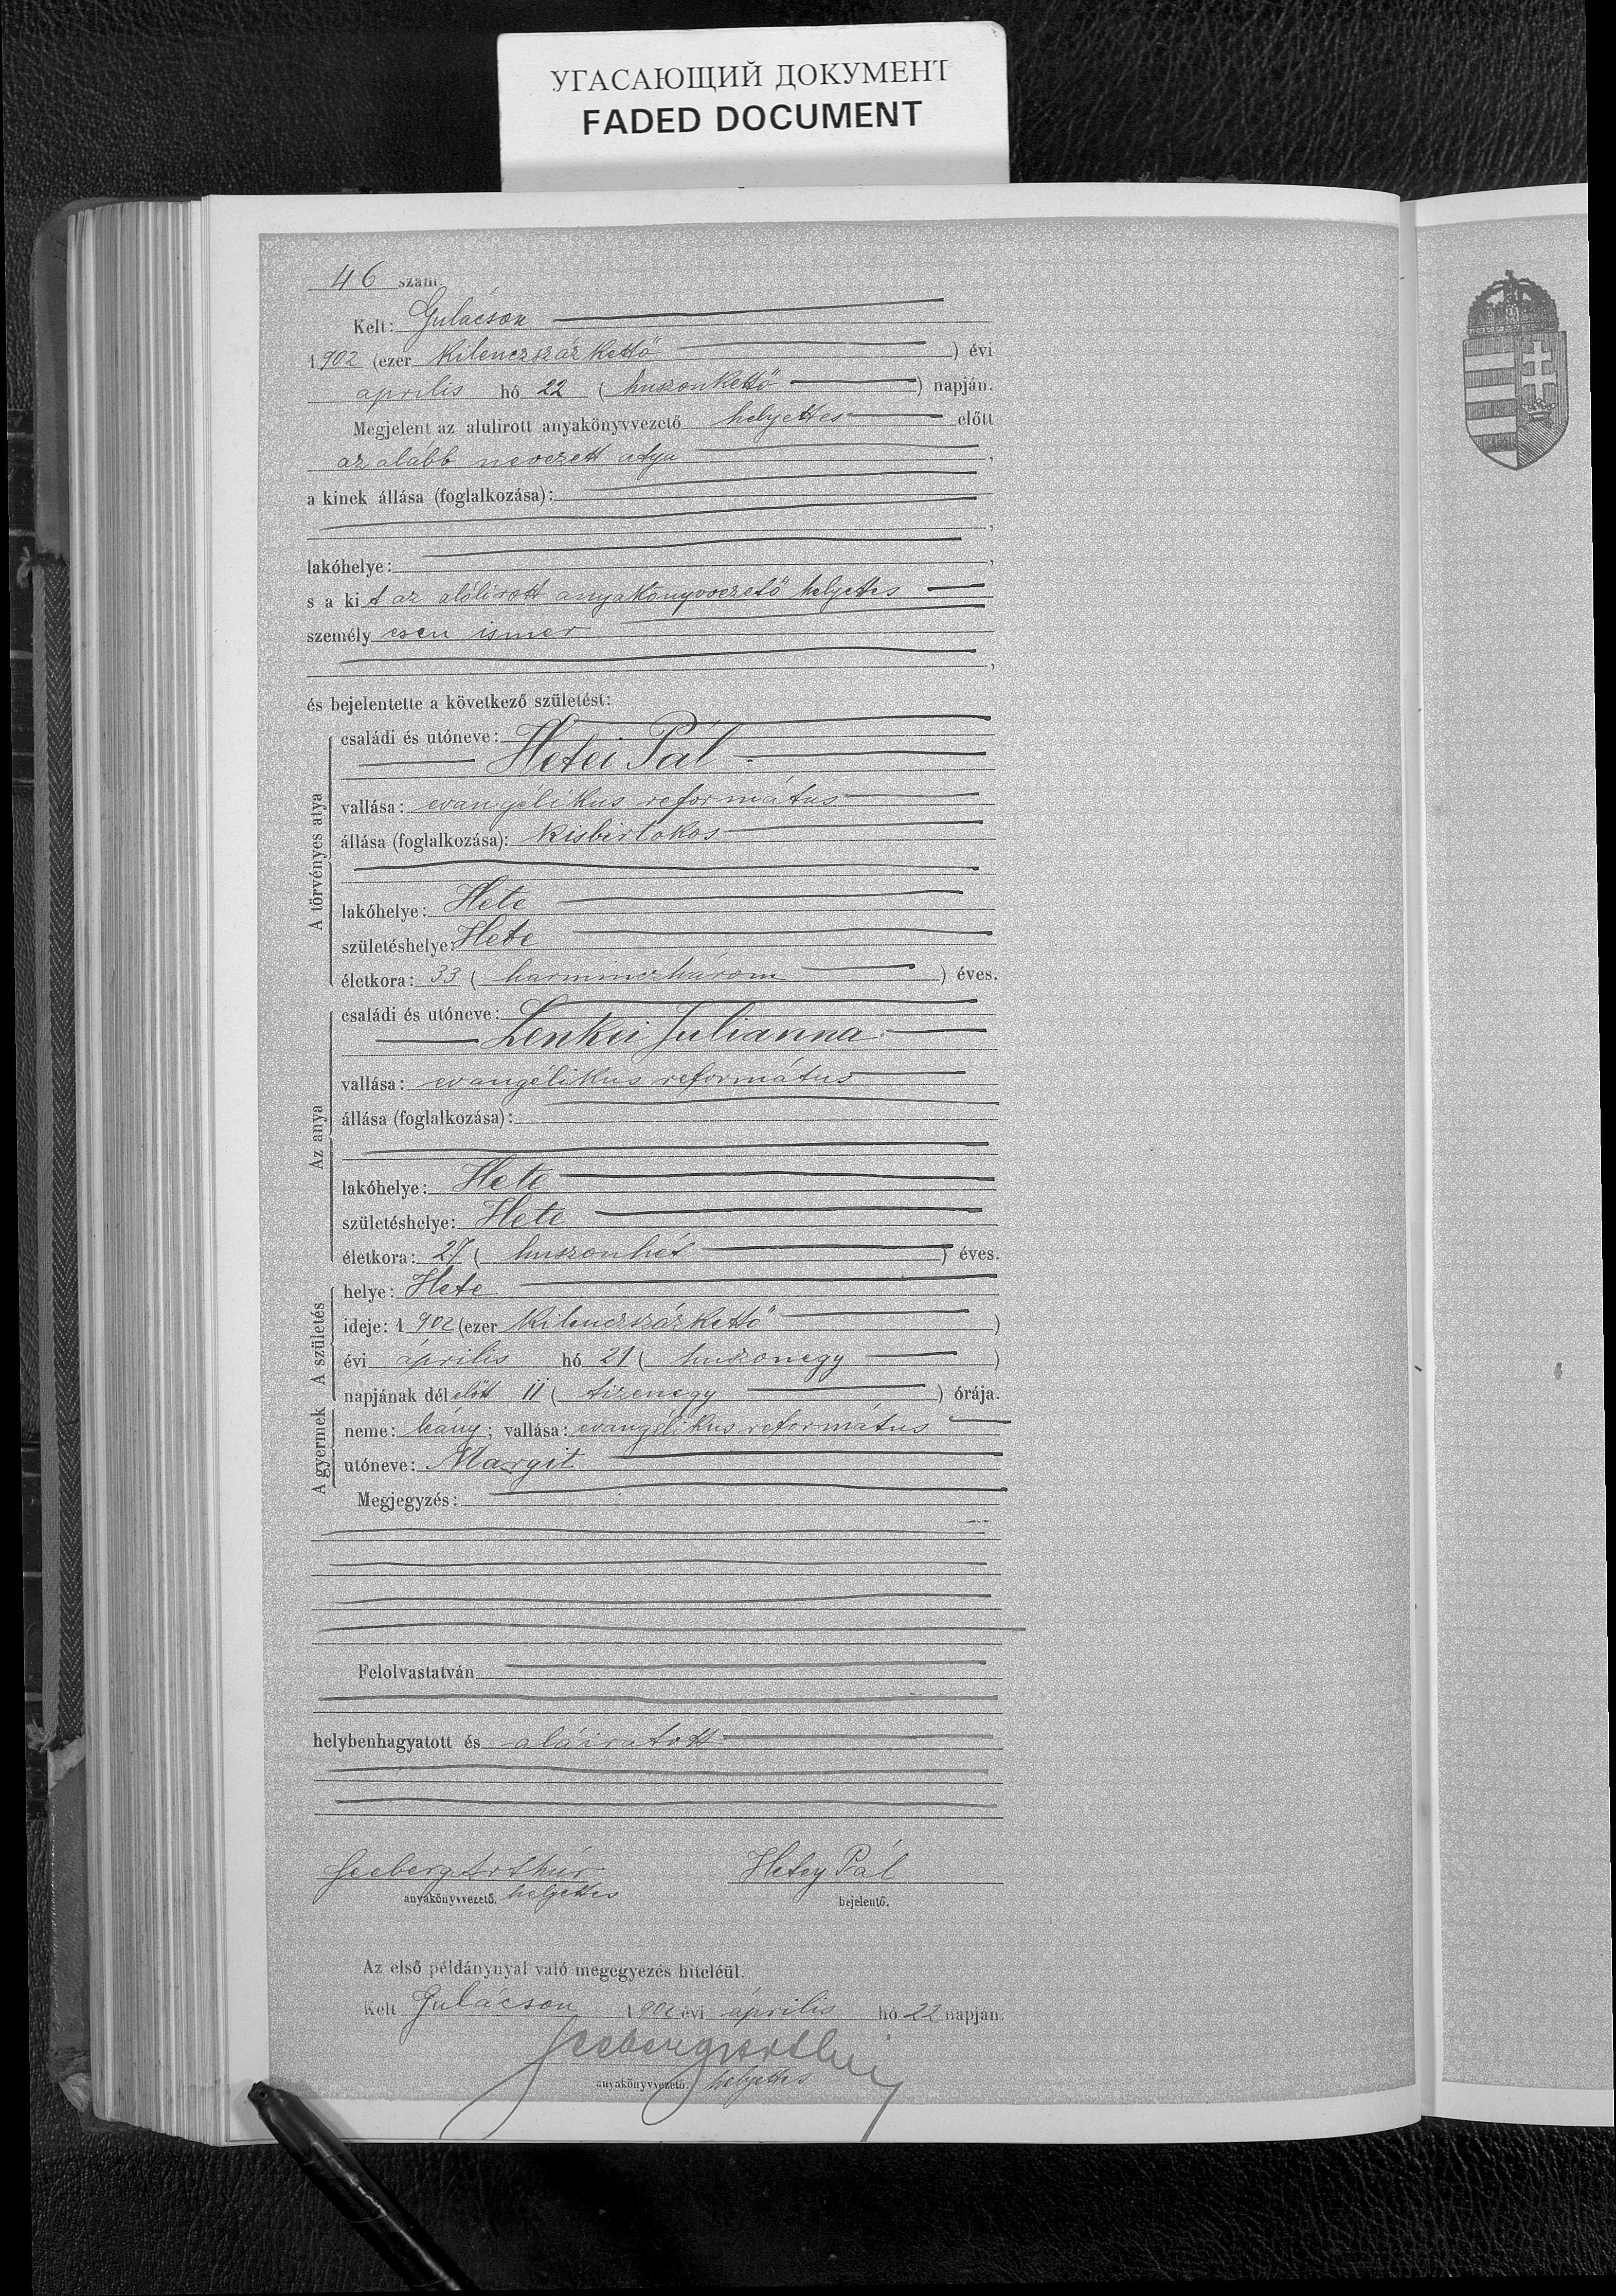 УГАСАЮЩИЙ ДОКУМЕНТ
FADED DOCUMENT
46 szám.
Kelt: Gulácson
1902 (ezer kilenczszázkettő) évi
április hó 22 (huszonkettő) napján.
Megjelent az alulirott anyakönyvvezető helyettes előtt
az alább nevezett atya,
a kinek állása (foglalkozása):
,
lakóhelye: ,
s a kit az alólirott anyakönyvvezető helyettes
személyesen ismer
,
és bejelentette a következő születést:
A törvényes atya
családi és utóneve:
Hetei Pál
vallása: evangélikus református
állása (foglalkozása): kisbirtokos
lakóhelye: Hete
születéshelye: Hete
életkora: 33 (harminczhárom) éves.
Az anya
családi és utóneve:
Lenkei Julianna
vallása: evangélikus református
állása (foglalkozása):
lakóhelye: Hete
születéshelye: Hete
életkora: 27 (huszonhét) éves.
A születés
helye: Hete
ideje: 1902 (ezer kilenczszázkettő)
évi április hó 21 (huszonegy)
napjának délelőtt 11 (tizenegy) órája.
A gyermek
neme: leány; vallása: evangélikus református
utóneve: Margit
Megjegyzés:
Felolvastatván
helybenhagyatott és aláiratott
Seeberg Arthúr Hetey Pál
anyakönyvvezető. helyettes bejelentő.
Az első példánynyal való megegyezés hiteléül.
Kelt Gulácson 1902 évi április hó 22 napján.
Seeberg Arthúr
anyakönyvvezető. helyettes